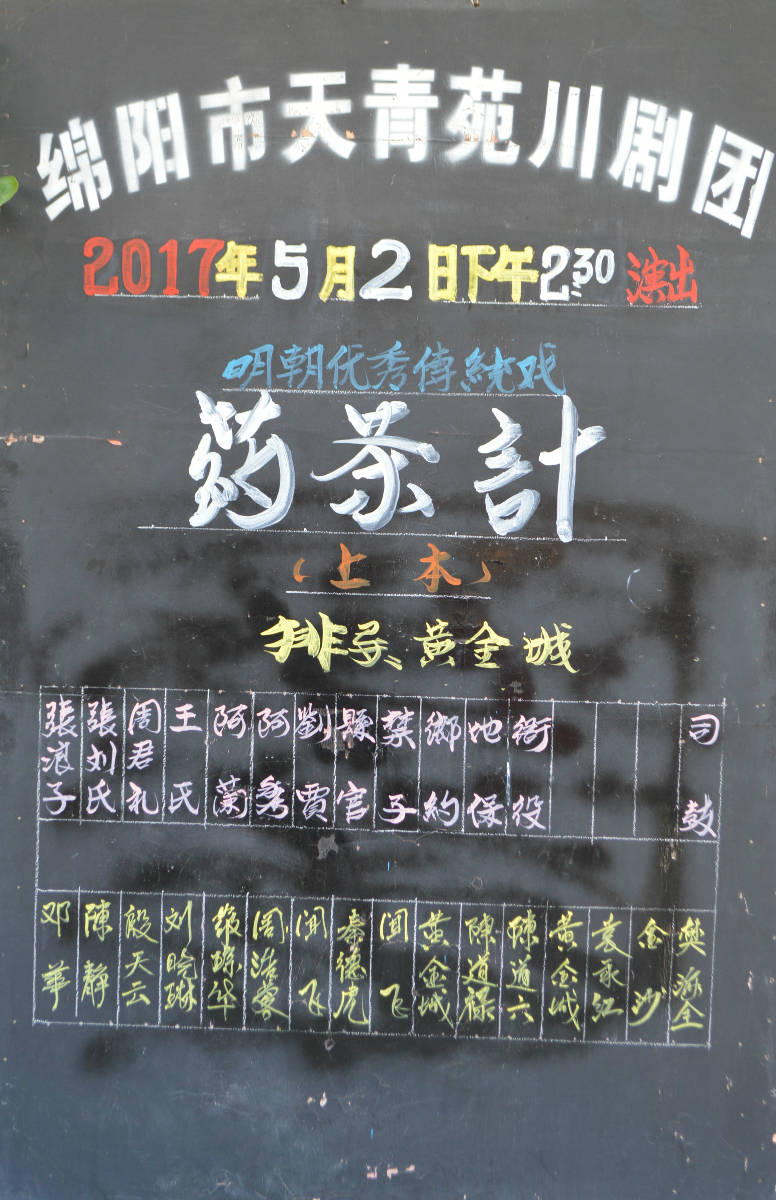 绵阳市天青苑川剧团
2017年5月2日下午2:30演出
明朝优秀傳統戏
药茶計
(上本)
排导 黄金城
張浪子 張刘氏 周君礼 王氏 阿蘭 阿秀 劉賈 縣官 禁子 鄉約 地保 衙役 司鼓
邓華 陳靜 殷天云 刘晓琳 張琼华 周浩蓉 闻飞 秦德虎 闻飞 黄金城 陳道禄 陳道六 黄金城 袁永江 金沙 樊海全